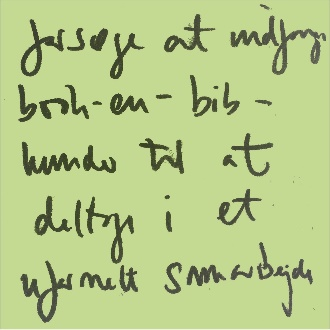 forsøge at indfange
book-en-bib-
kunder til at
deltage i et
uformelt samarbejde